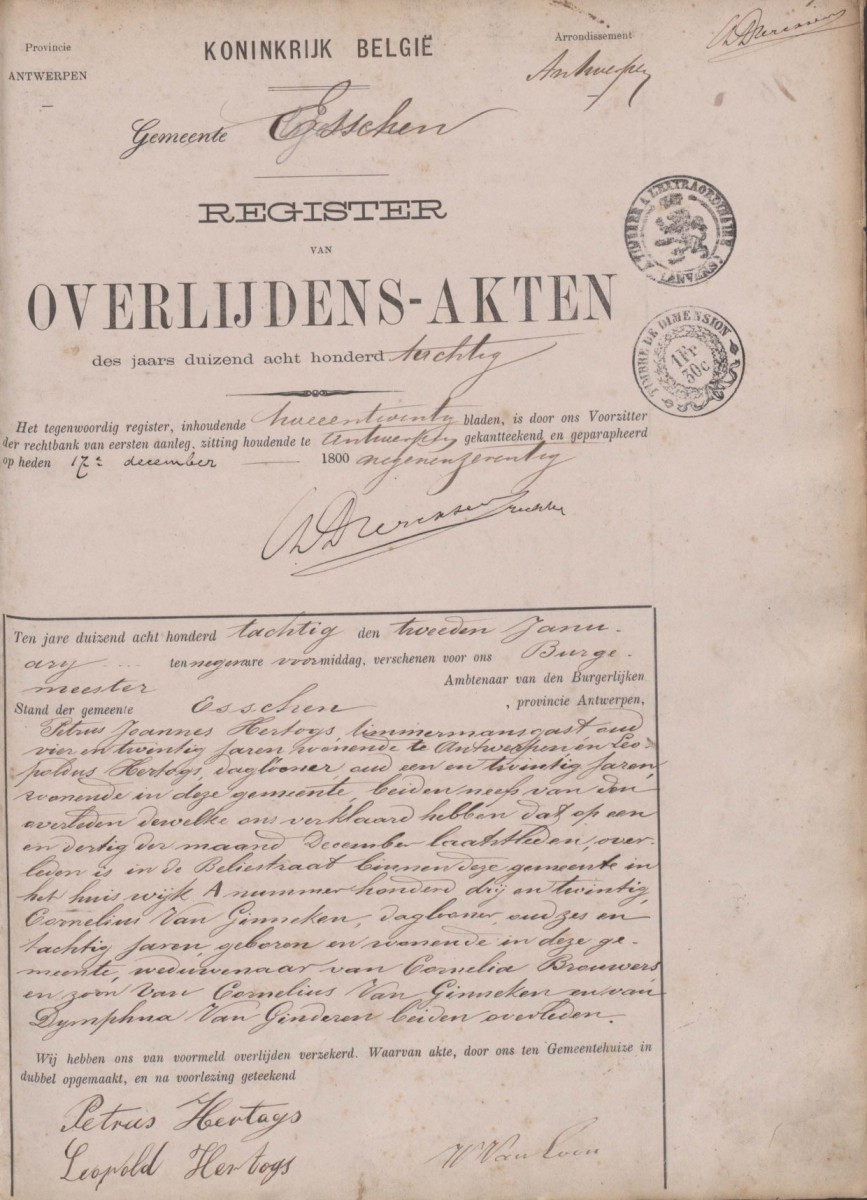 Provincie
ANTWERPEN
KONINKRIJK BELGIË
Arrondissement
Antwerpen
Gemeente Esschen
REGISTER
VAN
OVERLIJDENS-AKTEN
des jaars duizend acht honderd tachtig
TIMBRE A L'EXTRAORDINAIRE
(ANVERS)
TIMBRE DE DIMENSION
1 Fr
30c
Het tegenwoordig register, inhoudende tweeentwintig bladen, is door ons Voorzitter
der rechtbank van eersten aanleg, zitting houdende te Antwerpen gekantteekend en geparapheerd
op heden 17e december 1800 negenenzeventig
Ten jare duizend acht honderd tachtig den tweeden Janu-
ary ten negen ure voormiddag, verschenen voor ons Burge-
meester Ambtenaar van den Burgerlijken
Stand der gemeente Esschen, provincie Antwerpen,
Petrus Joannes Hertogs, timmermansgast, oud
vier en twintig jaren, wonende te Antwerpen en Leo-
poldus Hertogs, daglooner, oud een en twintig jaren,
wonende in deze gemeente, beiden neefs van den
overleden dewelke ons verklaard hebben dat op een
en dertig der maand December laatstleden, over-
leden is in de Beliestraat binnen deze gemeente in
het huis wijk A nummer honderd drij en twintig,
Cornelius Van Ginneken, daglooner, oud zes en
tachtig jaren, geboren en wonende in deze ge-
meente, weduwenaar van Cornelia Brouwers
en zoon van Cornelius Van Ginneken en van
Dymphna Van Ginderen beiden overleden.
Wij hebben ons van voormeld overlijden verzekerd. Waarvan akte, door ons ten Gemeentehuize in
dubbel opgemaakt, en na voorlezing geteekend
Petrus Hertogs
Leopold Hertogs
W Van Loon